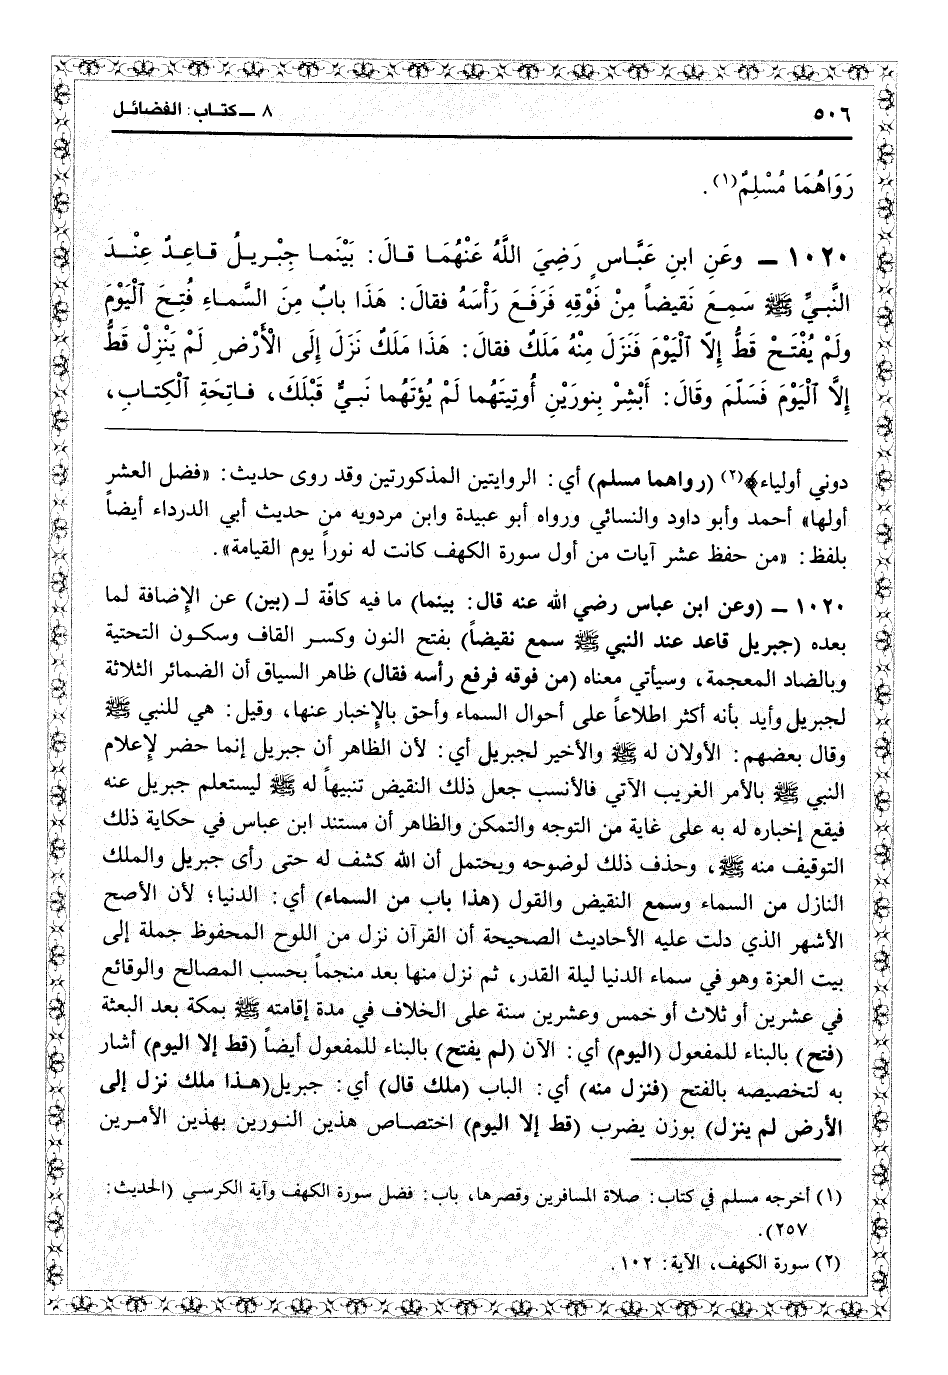 ٥٠٦ ٨ ـ كتاب: الفضائل
رَوَاهُمَا مُسْلِمٌ(١).
١٠٢٠ ـ وعَنِ ابنِ عَبَّاسٍ رَضِيَ اللَّهُ عَنْهُمَا قالَ: بَيْنَما جِبْريلُ قاعِدٌ عِنْدَ
النَّبيِّ ﷺ سَمِعَ نَقيضاً مِنْ فَوْقِهِ فَرَفَعَ رَأْسَهُ فقالَ: هَذَا بابٌ مِنَ السَّماءِ فُتِحَ ٱلْيَوْمَ
ولَمْ يُفْتَحْ قَطُّ إلّا ٱلْيَوْمَ فَنَزَلَ مِنْهُ مَلَكٌ فقالَ: هَذَا مَلَكٌ نَزَلَ إلى الْأَرْضِ لَمْ يَنْزِلْ قَطُّ
إلَّا ٱلْيَوْمَ فَسَلَّمَ وقَالَ: أَبْشِرْ بِنورَيْنِ أُوتِيتَهُما لَمْ يُؤتَهُما نَبيٌّ قَبْلَكَ، فـاتِحَةِ ٱلْكِتـابِ،
دوني أولياء﴾(٢) (رواهما مسلم) أي: الروايتين المذكورتين وقد روى حديث: «فضل العشر
أولها» أحمد وأبو داود والنسائي ورواه أبو عبيدة وابن مردويه من حديث أبي الدرداء أيضاً
بلفظ: «من حفظ عشر آيات من أول سورة الكهف كانت له نوراً يوم القيامة».
١٠٢٠ ـ (وعن ابن عباس رضي الله عنه قال: بينما) ما فيه كافّة لـ (بين) عن الإضافة لما
بعده (جبريل قاعد عند النبي ﷺ سمع نقيضاً) بفتح النون وكسر القاف وسكون التحتية
وبالضاد المعجمة، وسيأتي معناه (من فوقه فرفع رأسه فقال) ظاهر السياق أن الضمائر الثلاثة
لجبريل وأيد بأنه أكثر اطلاعاً على أحوال السماء وأحق بالإخبار عنها، وقيل: هي للنبي ﷺ
وقال بعضهم: الأولان له ﷺ والأخير لجبريل أي: لأن الظاهر أن جبريل إنما حضر لإعلام
النبي ﷺ بالأمر الغريب الآتي فالأنسب جعل ذلك النقيض تنبيهاً له ﷺ ليستعلم جبريل عنه
فيقع إخباره له به على غاية من التوجه والتمكن والظاهر أن مستند ابن عباس في حكاية ذلك
التوقيف منه ﷺ، وحذف ذلك لوضوحه ويحتمل أن الله كشف له حتى رأى جبريل والملك
النازل من السماء وسمع النقيض والقول (هذا باب من السماء) أي: الدنيا؛ لأن الأصح
الأشهر الذي دلت عليه الأحاديث الصحيحة أن القرآن نزل من اللوح المحفوظ جملة إلى
بيت العزة وهو في سماء الدنيا ليلة القدر، ثم نزل منها بعد منجماً بحسب المصالح والوقائع
في عشرين أو ثلاث أو خمس وعشرين سنة على الخلاف في مدة إقامته ﷺ بمكة بعد البعثة
(فتح) بالبناء للمفعول (اليوم) أي: الآن (لم يفتح) بالبناء للمفعول أيضاً (قط إلا اليوم) أشار
به لتخصيصه بالفتح (فنزل منه) أي: الباب (ملك قال) أي: جبريل(هـذا ملك نزل إلى
الأرض لم ينزل) بوزن يضرب (قط إلا اليوم) اختصاص هذين النورين بهذين الأمرين
(١) أخرجه مسلم في كتاب: صلاة المسافرين وقصرها، باب: فضل سورة الكهف وآية الكرسي (الحديث:
٢٥٧).
(٢) سورة الكهف، الآية: ١٠٢.